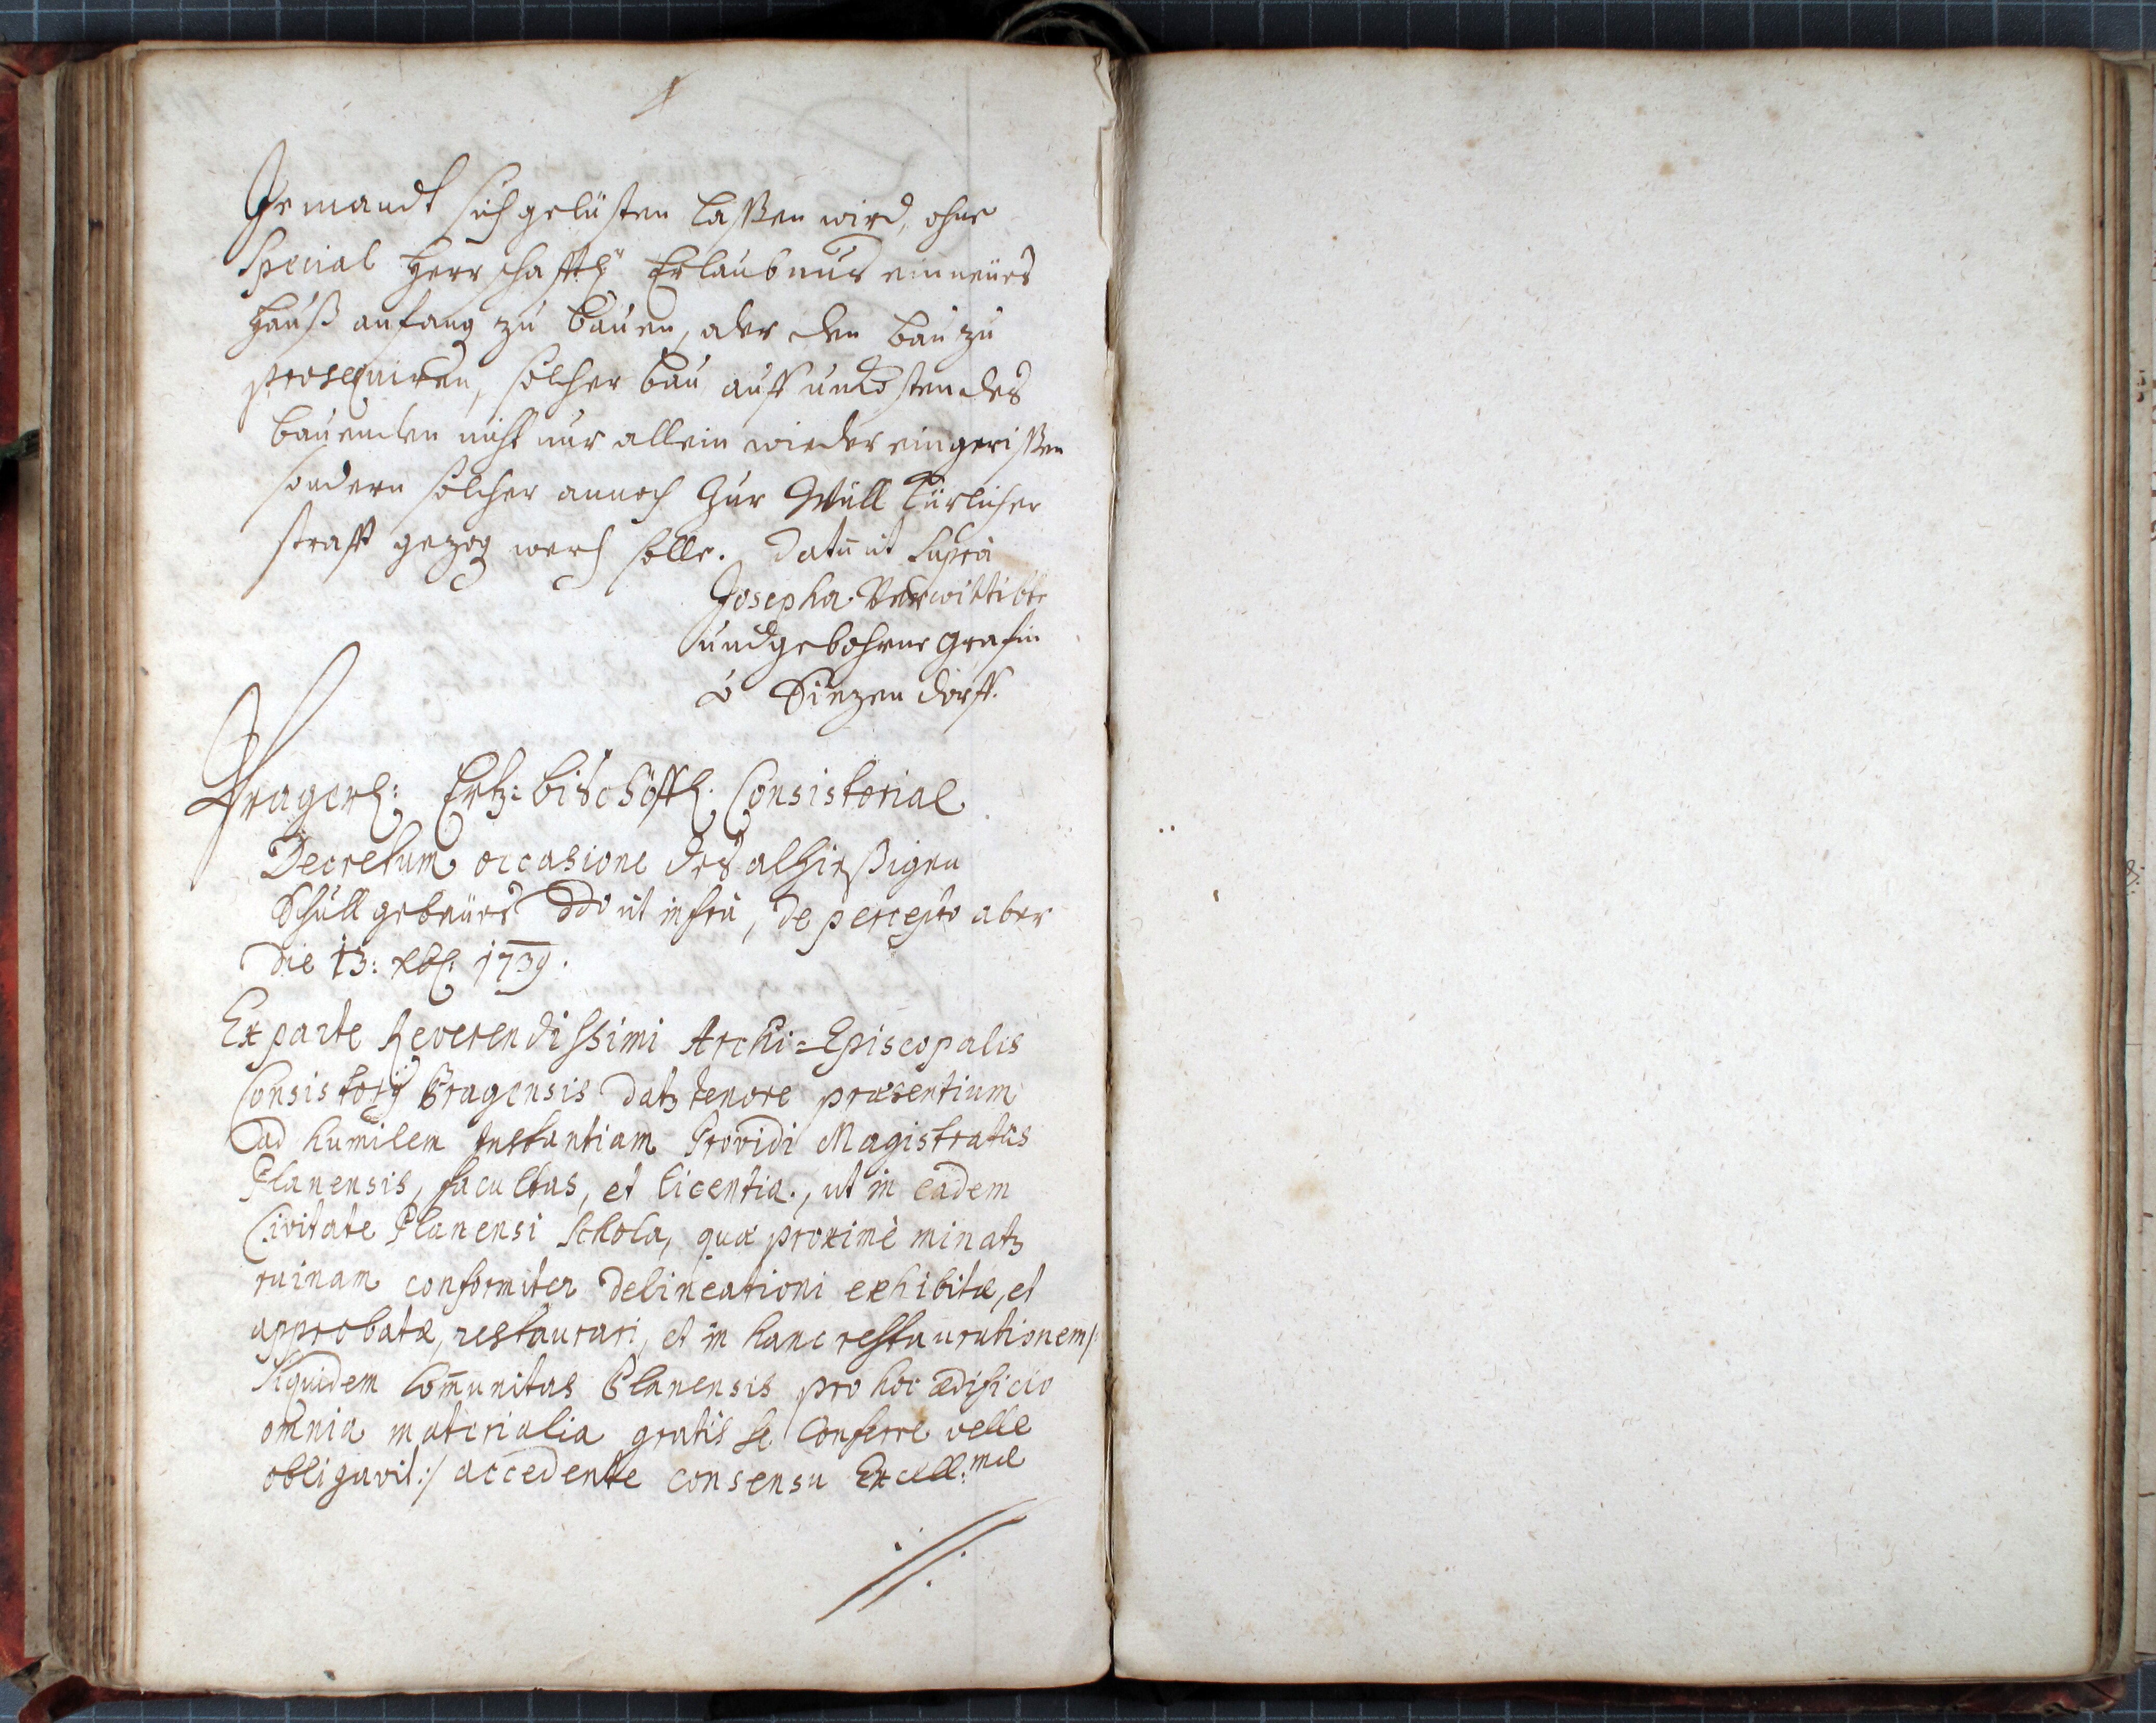 Jemandt sich gelüsten laßen wird, ohne
Special Herrschafftl: Erlaubnus ein neües
Hauß anfang zu bauen, oder den bau zu
prosequiren, solcher bau auff unkosten des
bauenden nicht nur allein wieder eingerißen
sondern solcher annoch zur Willkürlicher
straff gezog werd solle. Datu ut supra
Josepha Verwittibte
und gebohrne Grafin
v Sinzendorff.
Pragerl: Ertz=bischöffl. Consistorial
Decretum occasione des alhießigen
Schull gebeües ddo ut infra, de percepto aber
die 13: xbr: 1739.
Ex parte Reverendissimi Archi=Episcopalis
Consistorÿ Pragensis datz tenore præsentium
ad humilem Instantiam Providi Magistratûs
Planensis, facultas, et licentia., ut in eadem
Civitate Planensi Schola, quæ proximè minatz
ruinam conformiter delineationi exhibitæ, et
approbatæ, restaurari, et in hanc restaurationem/:
siquidem Com̄unitas Planensis pro hoc ædificio
omnia materialia gratis se conferre velle
obligavit:/ accedente consensu Excell:mæ